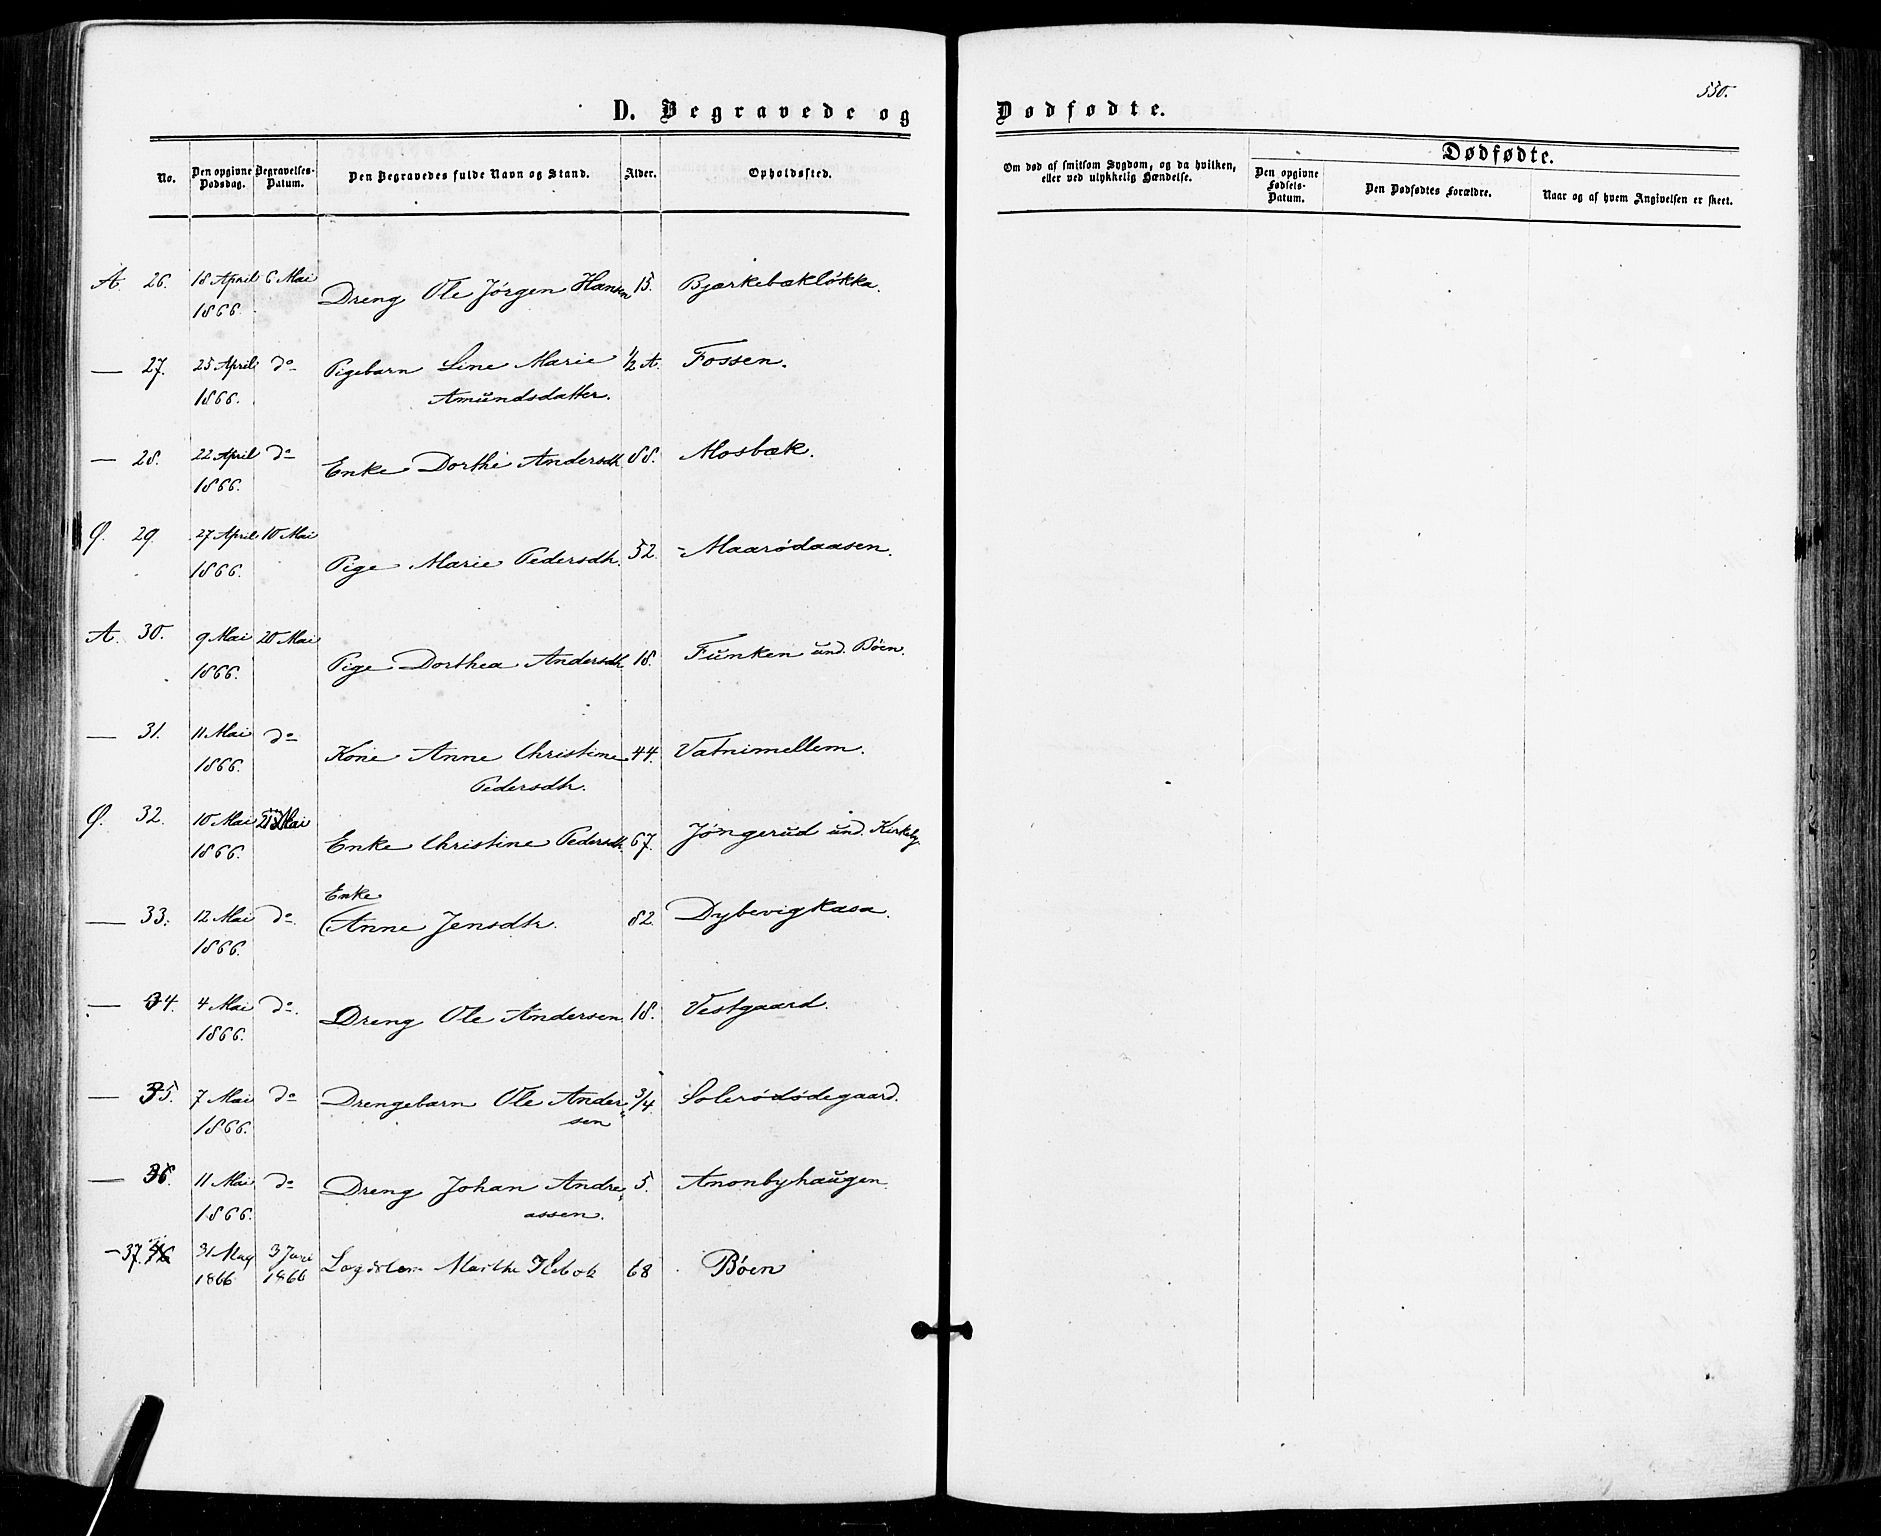 550.
D. Begravede og Dødfødte.
No. Den opgivne Dødsdag. Begravelses-Datum. Den Begravedes fulde Navn og Stand. Alder. Opholdssted. Om død af smitsom Sygdom, og da hvilken, eller ved ulykkelig Hændelse. Dødfødte.
Den opgivne Fødsels-Datum. Den Dødfødtes Forældre. Naar og af hvem Angivelsen er skeet.
A. 26. 18 April 6 Mai Dreng Ole Jørgen Hansen 15. Bjærkebækløkka.
1866.
— 27. 25 April do Pigebarn Line Marie ½ A. Fossen.
1866. Amundsdatter.
— 28. 22 April do Enke Dorthe Andersdtr. 88. Mosbæk.
1866.
Ø. 29. 27 April 10 Mai Pige Marie Pedersdtr. 52. Maarødaasen.
1866.
A. 30. 9 Mai 20 Mai Pige Dorthea Andersdtr. 18. Funken und. Böen.
1866.
— 31. 11 Mai do Kone Anne Christine 44. Vatnimellem.
1866. Pedersdtr.
Ø. 32. 10 Mai 21 Mai Enke Christine Pedersdtr. 67. Jøngerud und. Kirkeby
1866.
Enke
— 33. 12 Mai do. Anne Jensdtr. 82. Dybevigkasa.
1866.
— 34. 4 Mai do. Dreng Ole Andersen 18. Vestgaard.
1866.
— 35. 7 Mai do Drengebarn Ole Ander- 3/4 Solerødødegaard.
1866. sen
— 36. 11 Mai do Dreng Johan Andre- 5. Anonbyhaugen.
1866. assen.
— 37. 31 May 3 Juni Marthe 68 Böen
1866 1866